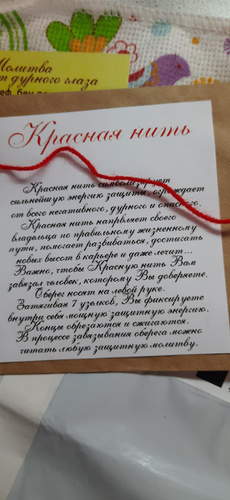 Молитва
от дурного глаза
Красная нить
Красная нить символизирует
сильнейшую энергию защиты, ограждает
от всего негативного, дурного и опасного.
Красная нить направляет своего
владельца по правильному жизненному
пути, помогает развиваться, достигать
новых высот в карьере и даже лечит...
Важно, чтобы Красную нить Вам
завязал человек, которому Вы доверяете.
Оберег носят на левой руке.
Затягивая 7 узлов, Вы фиксируете
внутри себя мощную защитную энергию.
Концы обрезаются и сжигаются.
В процессе завязывания оберега можно
читать любую защитную молитву.